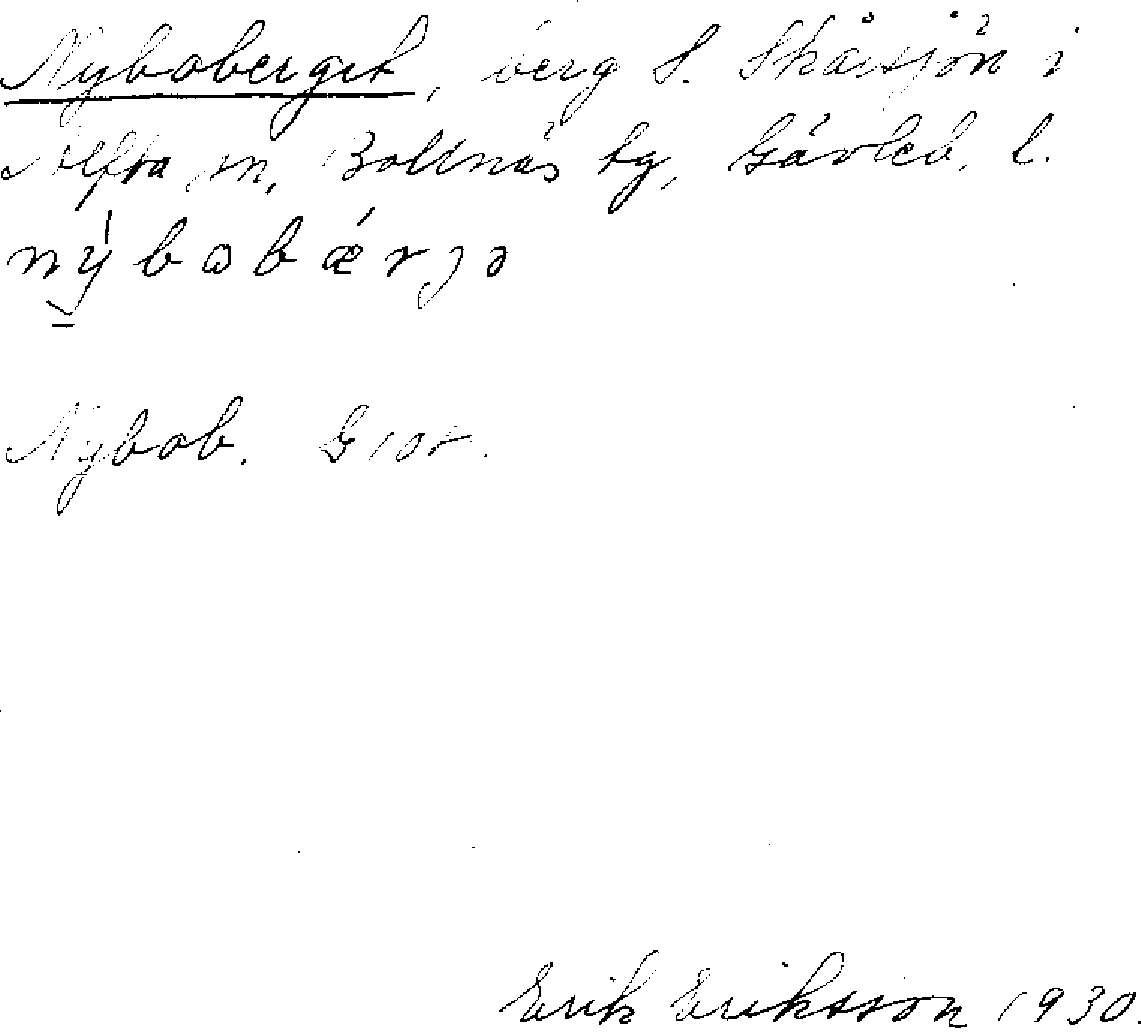 Nyboberget, berg S. Skåsjön i
Alfta sn, Bollnäs tg, Gävleb. l.
nýbobǽrjə
Nybob. G
Erik Eriksson 1930.